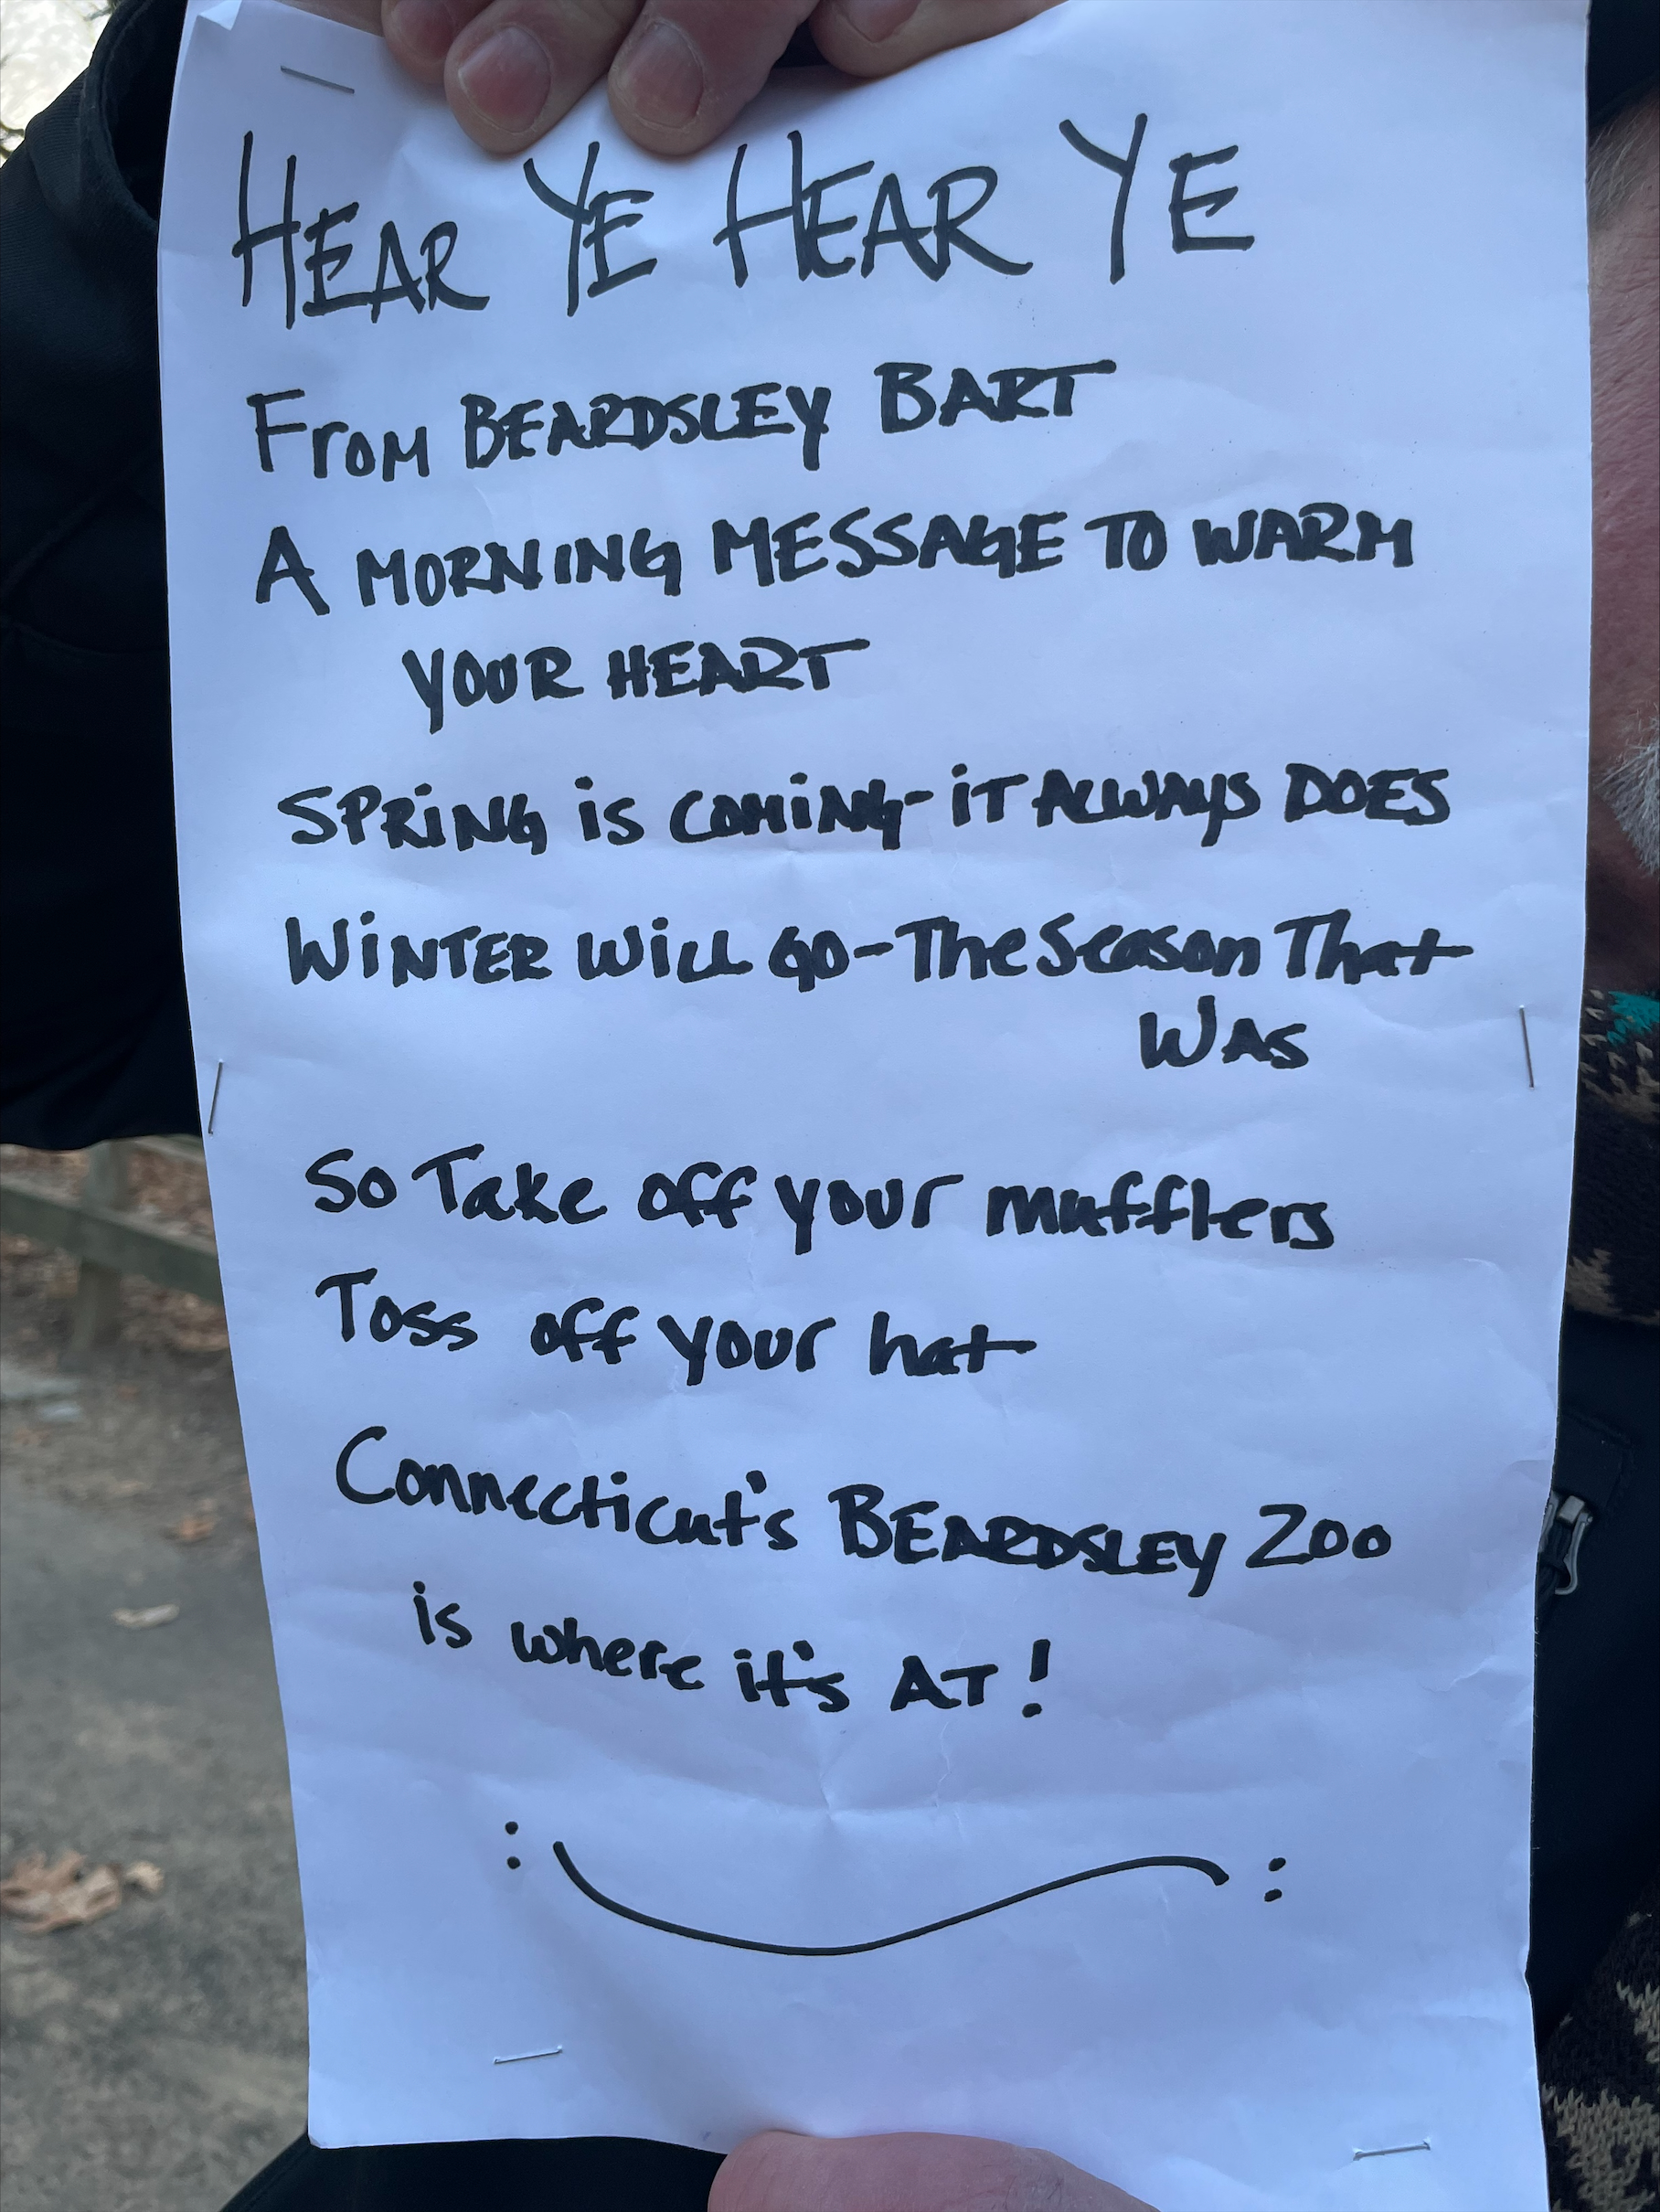 HEAR YE HEAR YE
From BEARDSLEY BART
A MORNING MESSAGE TO WARM
YOUR HEART
SPRiNG is COMiNG- iT ALWAYS DOES
WiNTER WiLL GO-The Season That
WAS
So Take off your mufflers
Toss off your hat
Connecticut's BEARDSLEY Zoo
is where it's AT!